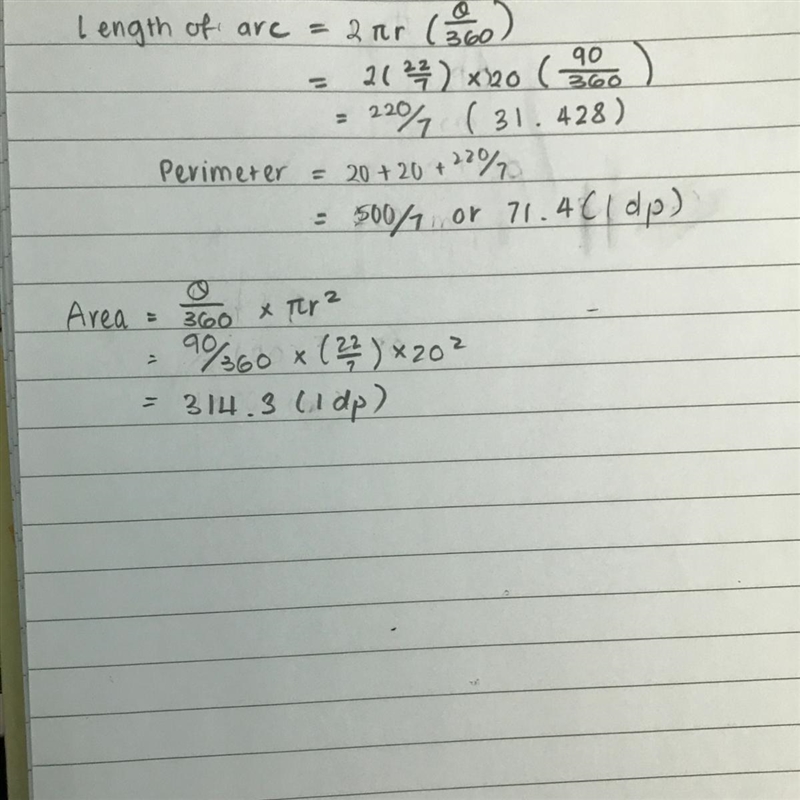 Length of arc = 2πr (θ/360)
= 2(22/7) × 20 (90/360)
= 220/7 (31.428)
Perimeter = 20 + 20 + 220/7
= 500/7 or 71.4 (1 dp)
Area = θ/360 × πr²
= 90/360 × (22/7) × 20²
= 314.3 (1 dp)